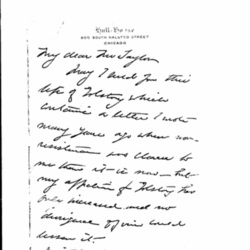 Hull-House
800 SOUTH HALSTED STREET
CHICAGO
My dear Mr Taylor
May I send you this
life of Tolstoy which
contains a letter I wrote
many years ago when non-
resistance was clearer to
me than it is now - but
my appreciation of Tolstoy has
only increased and no
divergence of views could
lessen it.